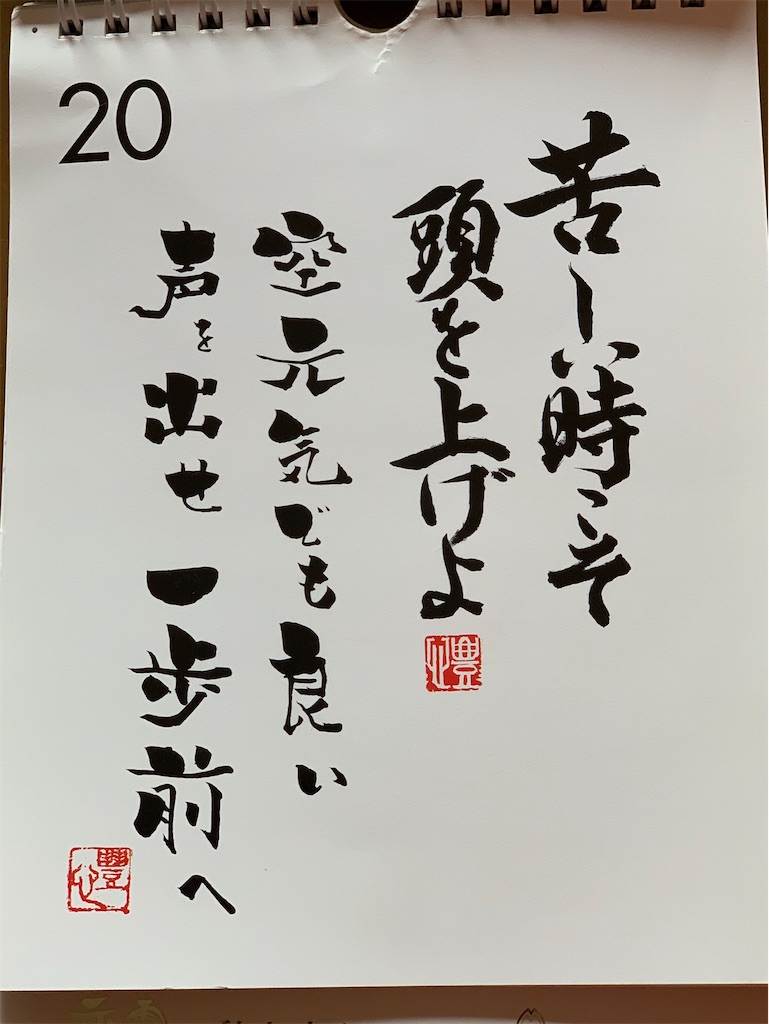 20
苦しい時こそ
頭を上げよ
空元気でも良い
声を出せ一歩前へ